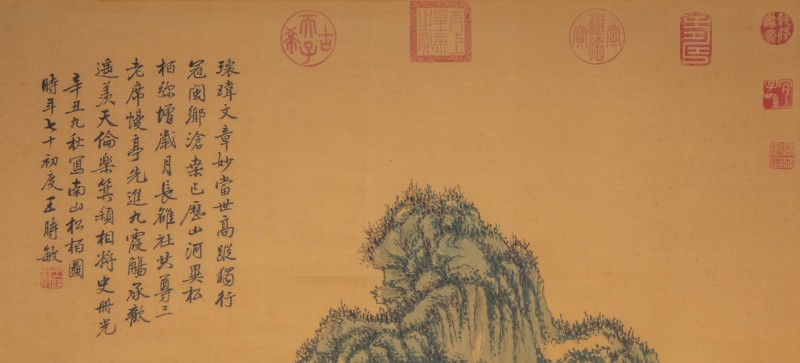 古希天子
環瑋文章妙當世高蹤獨行
冠閩鄉滄桑已歷山河異松
栢弥增歲月長雒社共尊三
老席慢亭先進九霞觴承歡
遥羨天倫樂箕穎相將史冊光
辛丑九秋寫南山松栢圖
時年七十初度王時敏